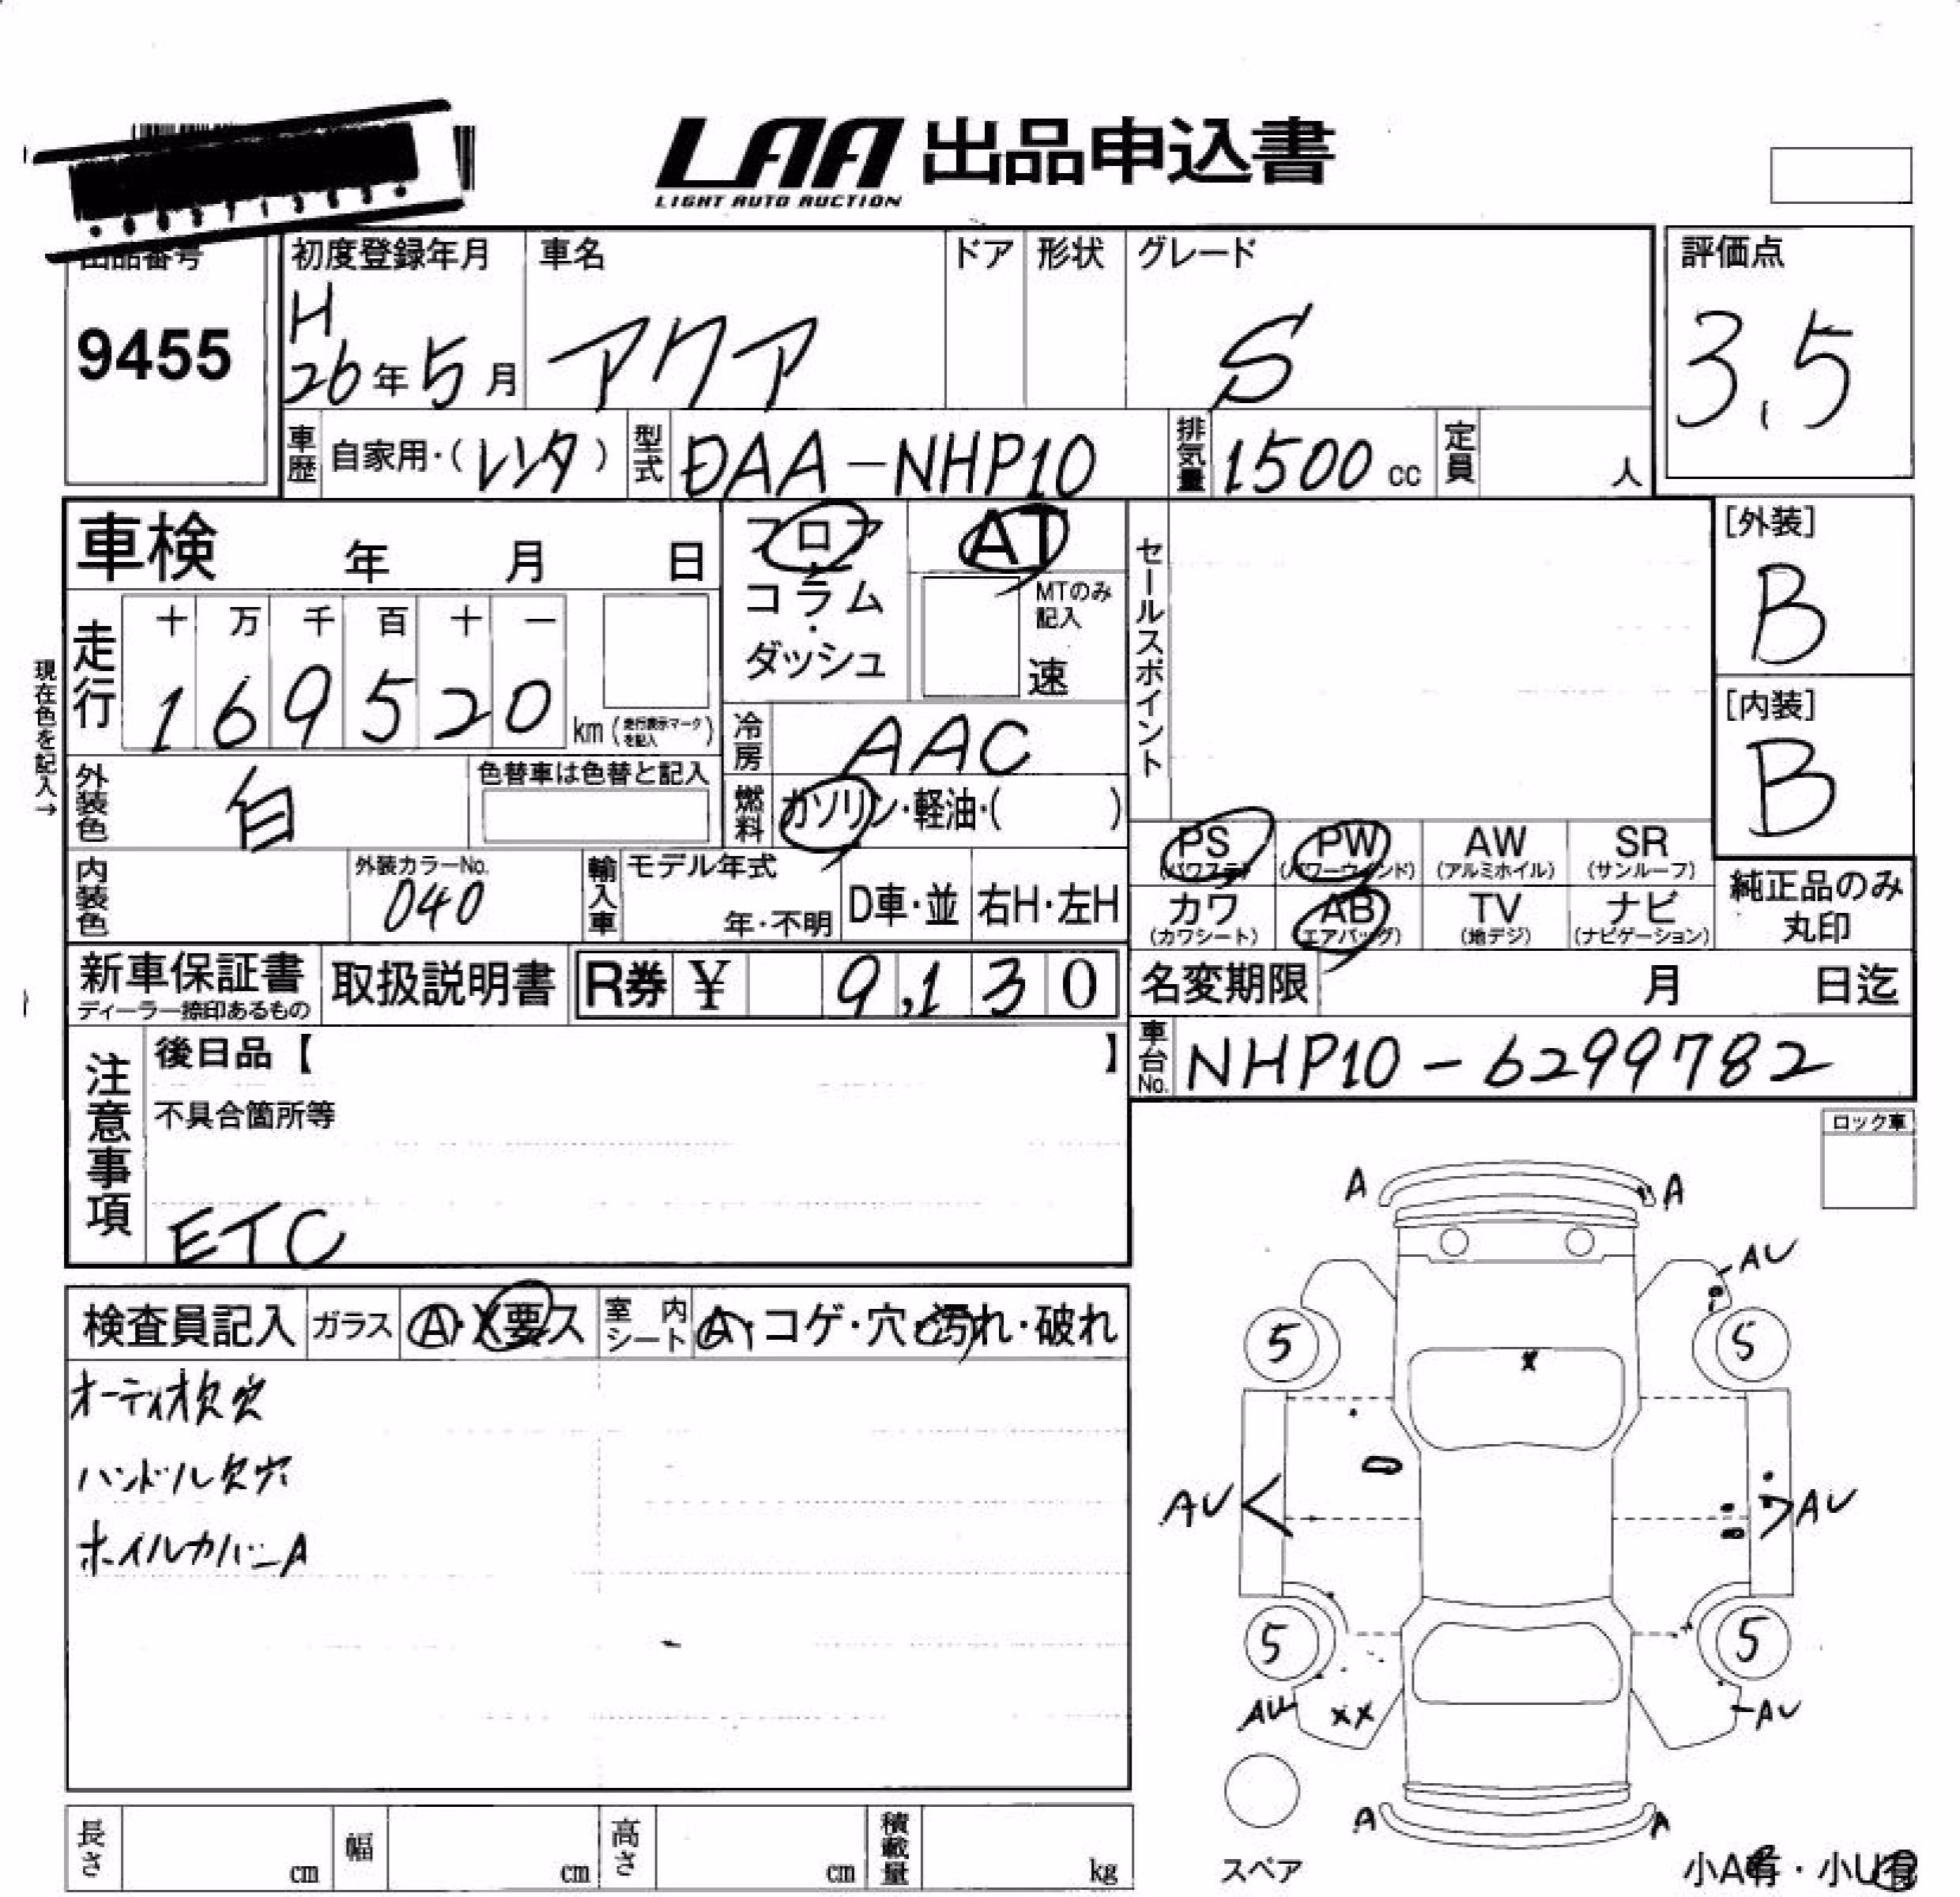 LAA 出品申込書
LIGHT AUTO AUCTION
出品番号
9455
初度登録年月
H
26年5月
車名
アクア
ドア
形状
グレード
S
評価点
3.5
車歴 自家用・(レンタ)
型式 DAA-NHP10
排気量 1500cc
定員 人
車検 年 月 日
フロア
コラム
・
ダッシュ
AT
MTのみ
記入
速
セールスポイント
[外装]
B
[内装]
B
現在色を記入→
走行
十 万 千 百 十 一
1 6 9 5 2 0
km(走行表示マークを記入)
冷房 AAC
外装色 白
色替車は色替と記入
燃料 ガソリン・軽油・( )
PS
(パワステ)
PW
(パワーウインド)
AW
(アルミホイル)
SR
(サンルーフ)
内装色
外装カラーNo.
040
輸入車
モデル年式
年・不明
D車・並
右H・左H
カワ
(カワシート)
AB
(エアバッグ)
TV
(地デジ)
ナビ
(ナビゲーション)
純正品のみ
丸印
新車保証書
ディーラー捺印あるもの
取扱説明書
R券 ¥ 9,130
名変期限 月 日迄
車台No. NHP10-6299782
注意事項
後日品【 】
不具合箇所等
ETC
ロック車
検査員記入
ガラス A・X要ス
室内シート A・コゲ・穴・汚れ・破れ
オーディオ欠穴
ハンドル欠穴
ホイルカバーA
A A
AU
5 5
X
AU AU
5 5
AU XX AU
A A
スペア
長さ cm
幅 cm
高さ cm
積載量 kg
小A有・小U有